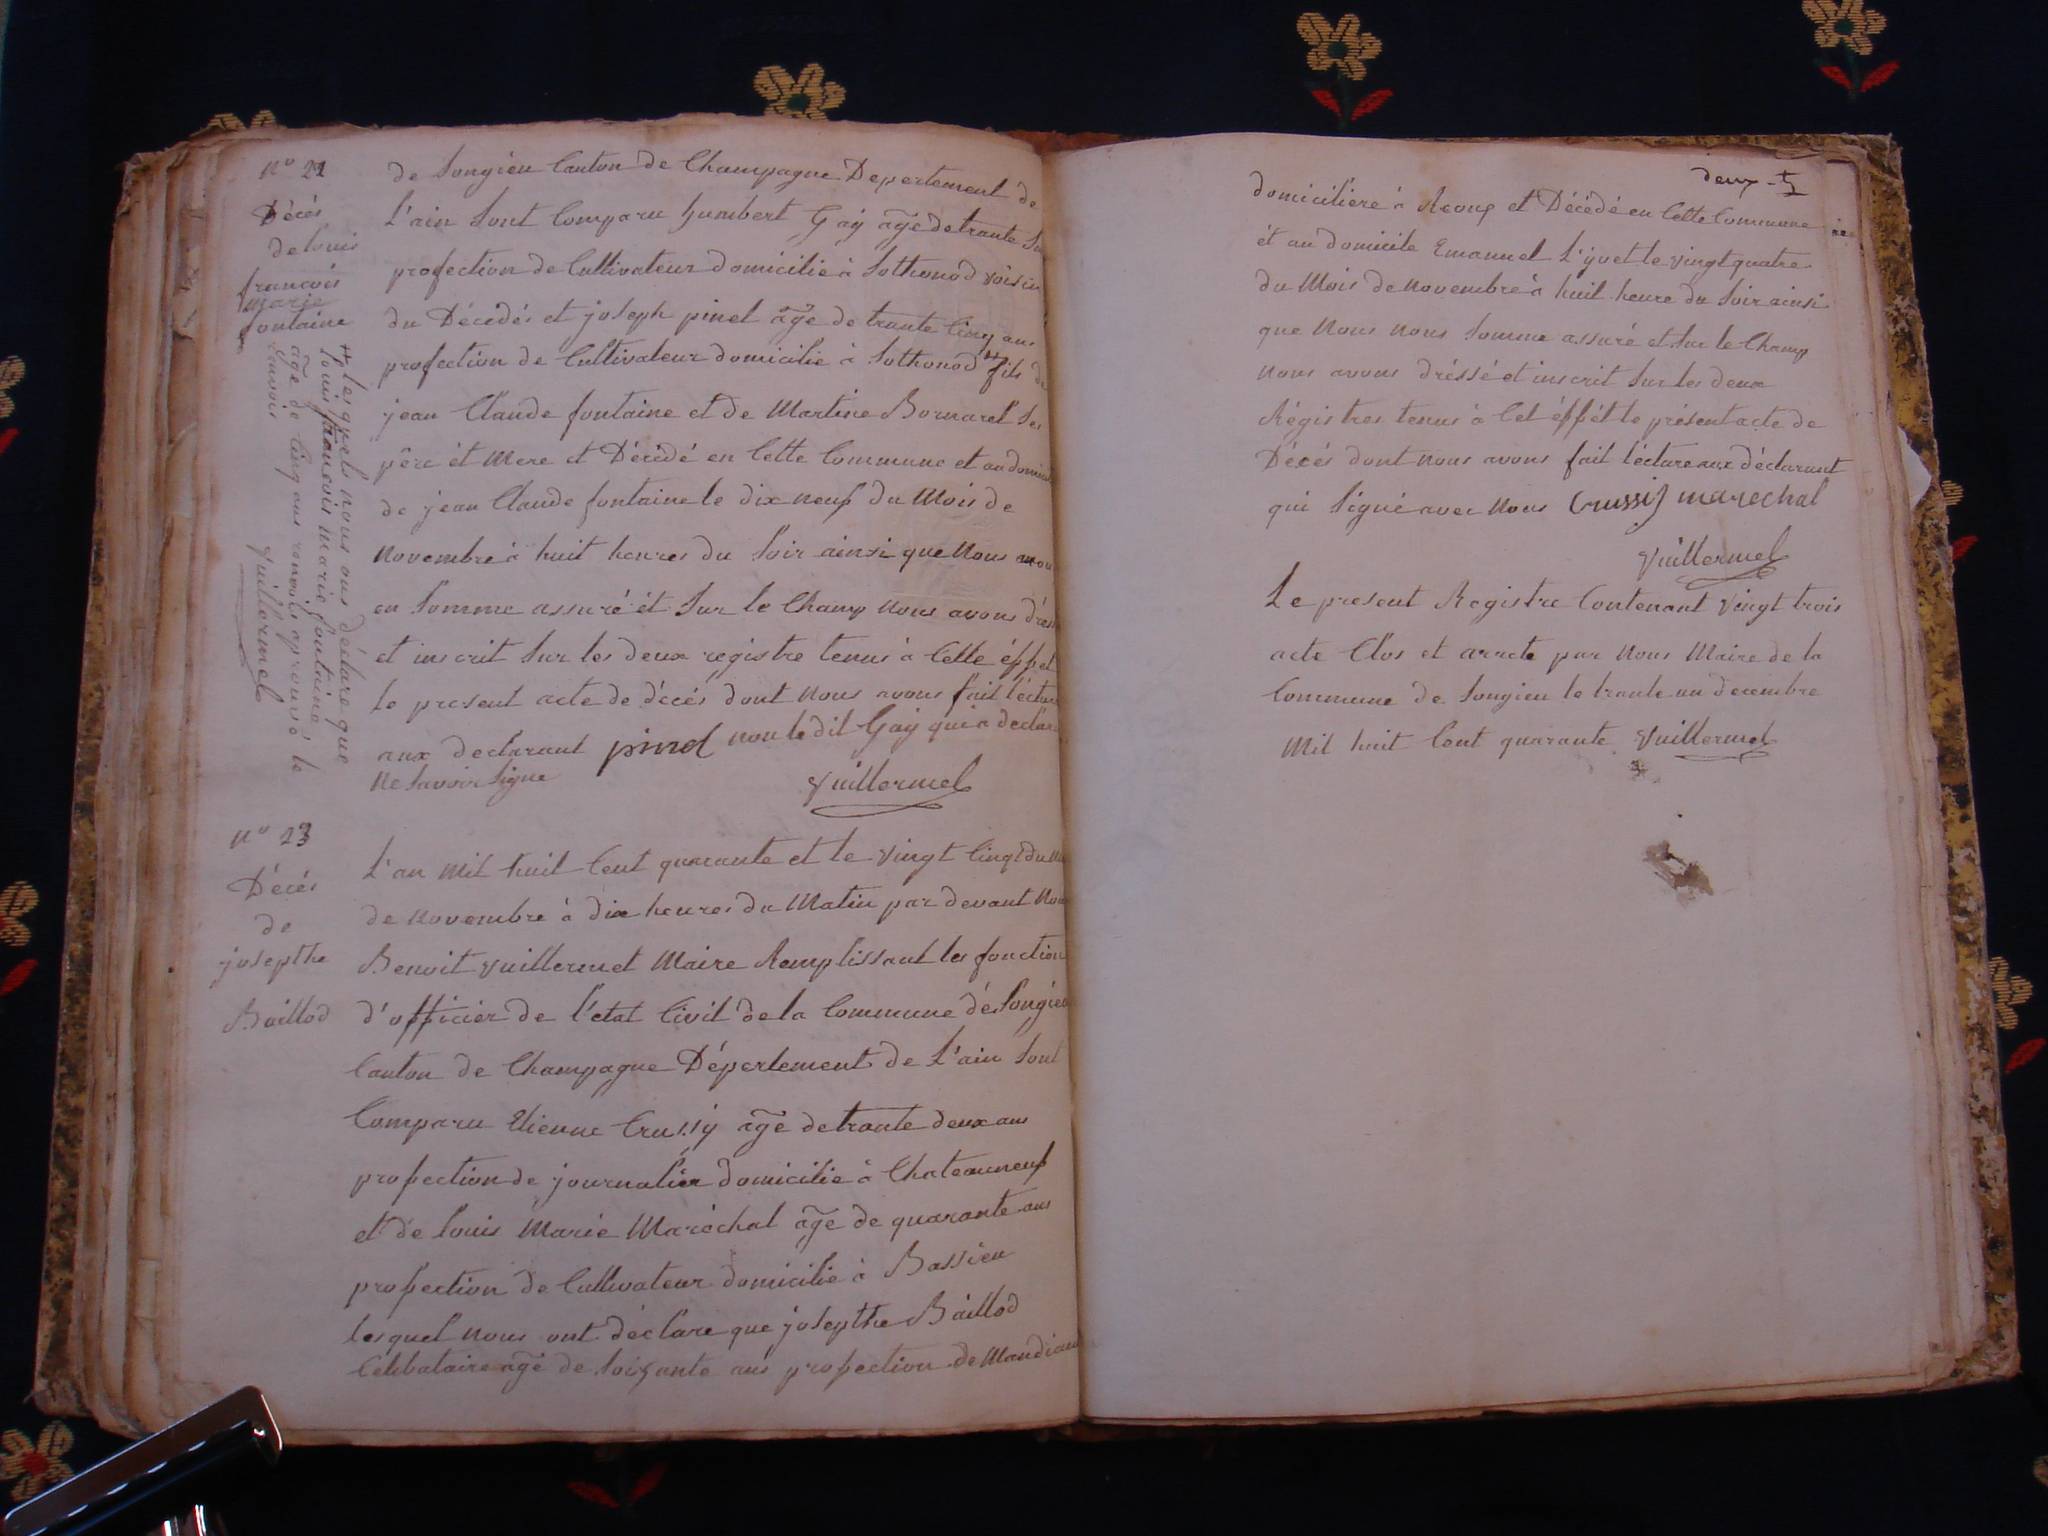 nº 22
Décés
de louis
francois
marie
fontaine
de Songieu Canton de Champagne Depertement de
L'ain Sont Comparu humbert Gaÿ agé de trante
profection de Cultivateur domicilié à Sothonod voisin
du Décédés et joseph pinet agé de trante Cinq ans
profection de Cultivateur domicilié à Sothonod # fils de
jean Claude fontaine et de Martine Bornarel Ses
pére ét Mere et Décédé en Cette Commune et au domicile
de jean Claude fontaine le dix neuf du Mois de
novembre à huit heures du Soir ainsi que Nous
en Somme assuré ét Sur le Champ nous avons
et inscrit Sur les deux registre tenus à Cette éffet
le present acte de décés dont nous avons fait léctur
aux declarant pinet non le dit Gaÿ qui a declare
Ne Savoir Signe
Vuillermet
# lesquels nous ons déclare que
louis francois marie fontaine
agé de Cinq ans renvois aprouvé le
renvois
Vuillermet
nº 23
Décés
de
josepthe
Baillod
L'an Mil huit Cent quarante et le vingt Cinq du
de novembre à dix heures du Matin par devant Nous
Benoit Vuillermet Maire Remplissant les fonction
d'officier de l'etat Civil de la Commune de Songieu
Canton de Champagne Dépertement de L'ain Sont
Comparu Etienne Crussÿ agé de trante deux ans
profection de journalier domicilié à Chateauneuf
et de louis Marie Maréchal agé de quarante ans
profection de Cultivateur domicilié à Bassieu
lesquel nous ont déclare que josepthe Baillod
Celibataire agé de Soixante ans profection de Mandiant
deux
domiciliere à et Décédé en Cette Commune
ét au domicile Emanuel L'yvet le vingt quatre
du Mois de novembre à huit heure du Soir ainsi
que Nous nous Somme assuré et Sur le Champ
nous avons dréssé et inscrit Sur les deux
Régistres tenus à Cet éffét le présent acte de
Décés dont nous avons fait lécture aux déclarant
qui Signé avec nous Crussij marechal
Vuillermet
Le present Registre Contenant Vingt trois
acte Clos et arrete par Nous Maire de la
Commune de Songieu le trante un decembre
Mil huit Cent quarante Vuillermet